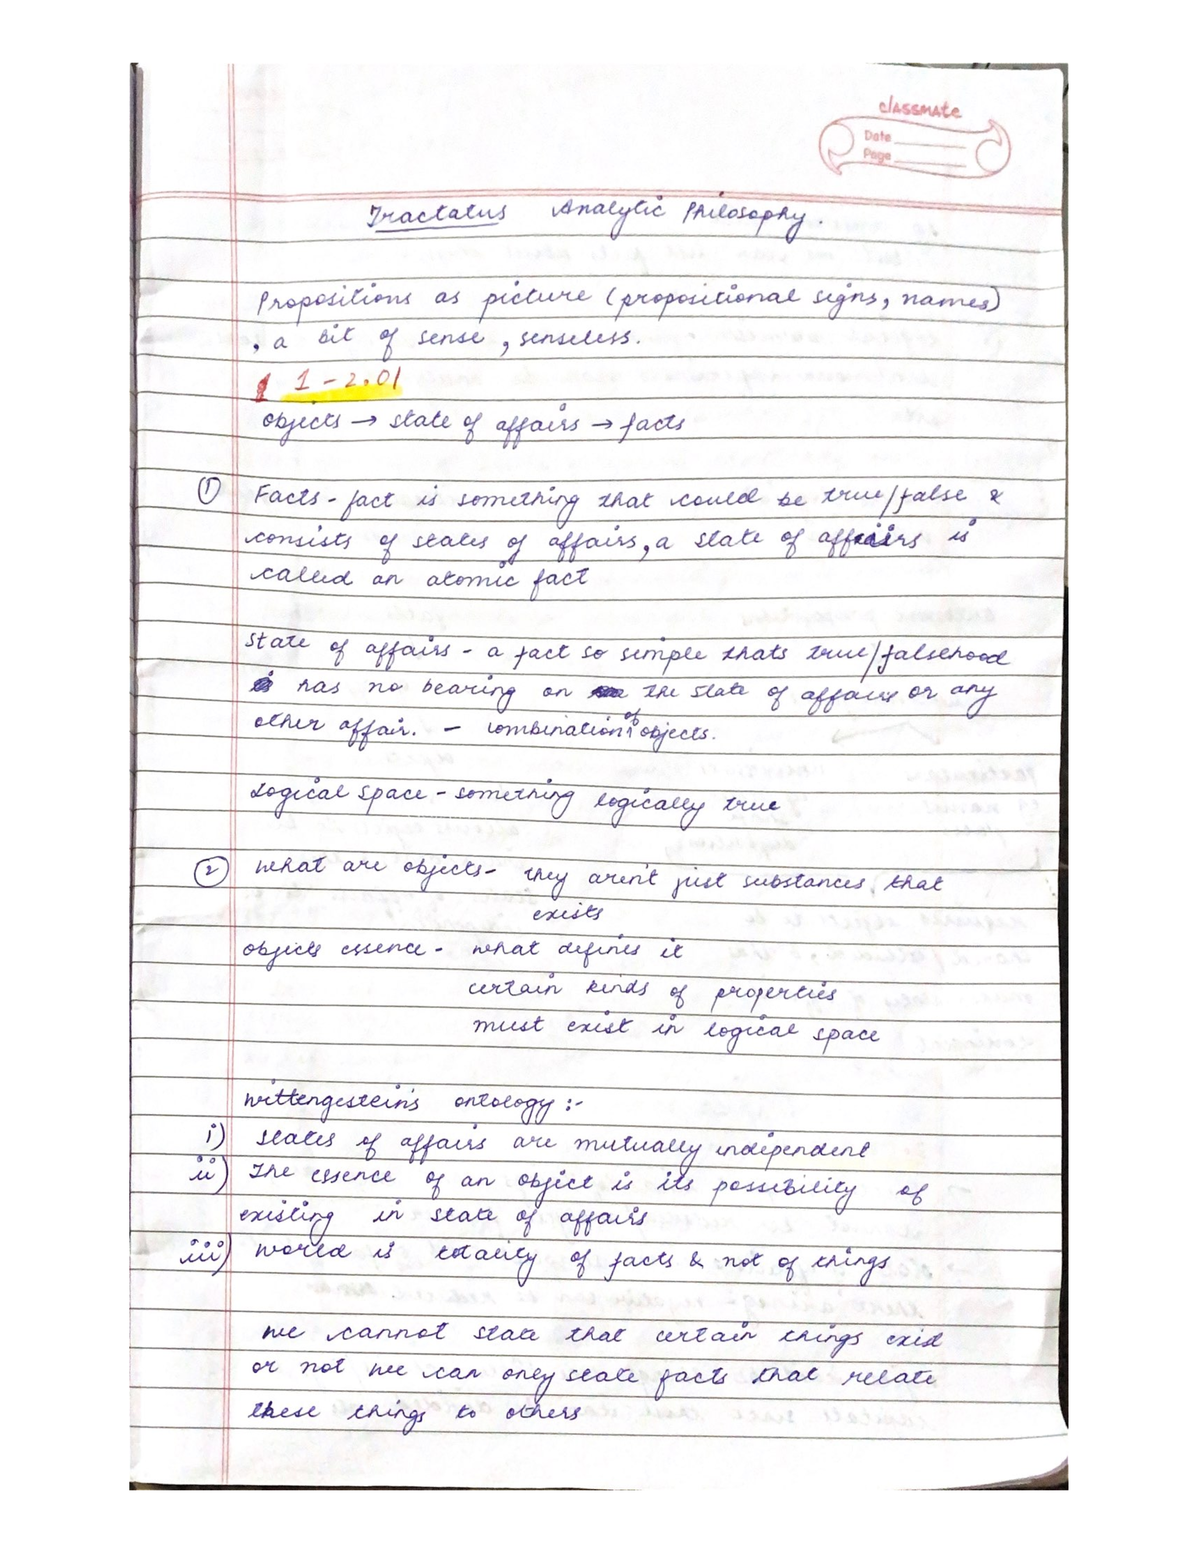 classmate
Date
Page
Tractatus Analytic Philosophy.
Propositions as picture (propositional signs, names)
, a bit of sense, senseless.
1 - 2.01
objects → state of affairs → facts
① Facts - fact is something that could be true/false &
consists of states of affairs, a state of affairs is
called an atomic fact
State of affairs - a fact so simple thats true/falsehood
has no bearing on the state of affairs or any
other affair. - combination of objects.
Logical Space - something logically true
② What are objects - they aren't just substances, that
exists
objects essence - what defines it
certain kinds of properties
must exist in logical space
Wittengestein's ontology :-
i) States of affairs are mutually independent
ii) The essence of an object is its possibility of
existing in state of affairs
iii) World is totality of facts & not of things
We cannot state that certain things exist
or not we can only state facts that relate
these things to others